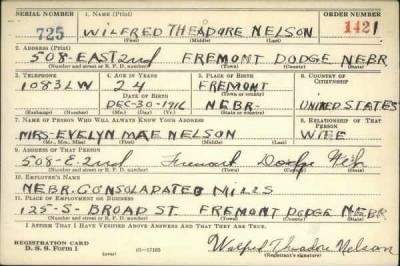 SERIAL NUMBER 1. NAME (Print) ORDER NUMBER
725 WILFRED THEADORE NELSON 1421
(First) (Middle) (Last)
2. ADDRESS (Print)
508-EAST 2nd FREMONT DODGE NEBR
(Number and street or R. F. D. number) (Town) (County) (State)
3. TELEPHONE 4. AGE IN YEARS 5. PLACE OF BIRTH 6. COUNTRY OF CITIZENSHIP
1083LW 24 FREMONT
DATE OF BIRTH (Town or county)
DEC-30-1916 NEBR- UNITED STATES
(Exchange) (Number) (Mo.) (Day) (Yr.) (State or country)
7. NAME OF PERSON WHO WILL ALWAYS KNOW YOUR ADDRESS 8. RELATIONSHIP OF THAT PERSON
MRS-EVELYN MAE NELSON WIFE
(Mr., Mrs., Miss) (First) (Middle) (Last)
9. ADDRESS OF THAT PERSON
508-E-2nd Fremont Dodge Neb
(Number and street or R. F. D. number) (Town) (County) (State)
10. EMPLOYER'S NAME
NEBR. CONSOLADATED MILLS
11. PLACE OF EMPLOYMENT OR BUSINESS
125-S-BROAD ST. FREMONT DODGE NEBR
(Number and street or R. F. D. number) (Town) (County) (State)
I AFFIRM THAT I HAVE VERIFIED ABOVE ANSWERS AND THAT THEY ARE TRUE.
REGISTRATION CARD
D. S. S. Form 1 Wilfred Theadore Nelson
(Registrant's signature)